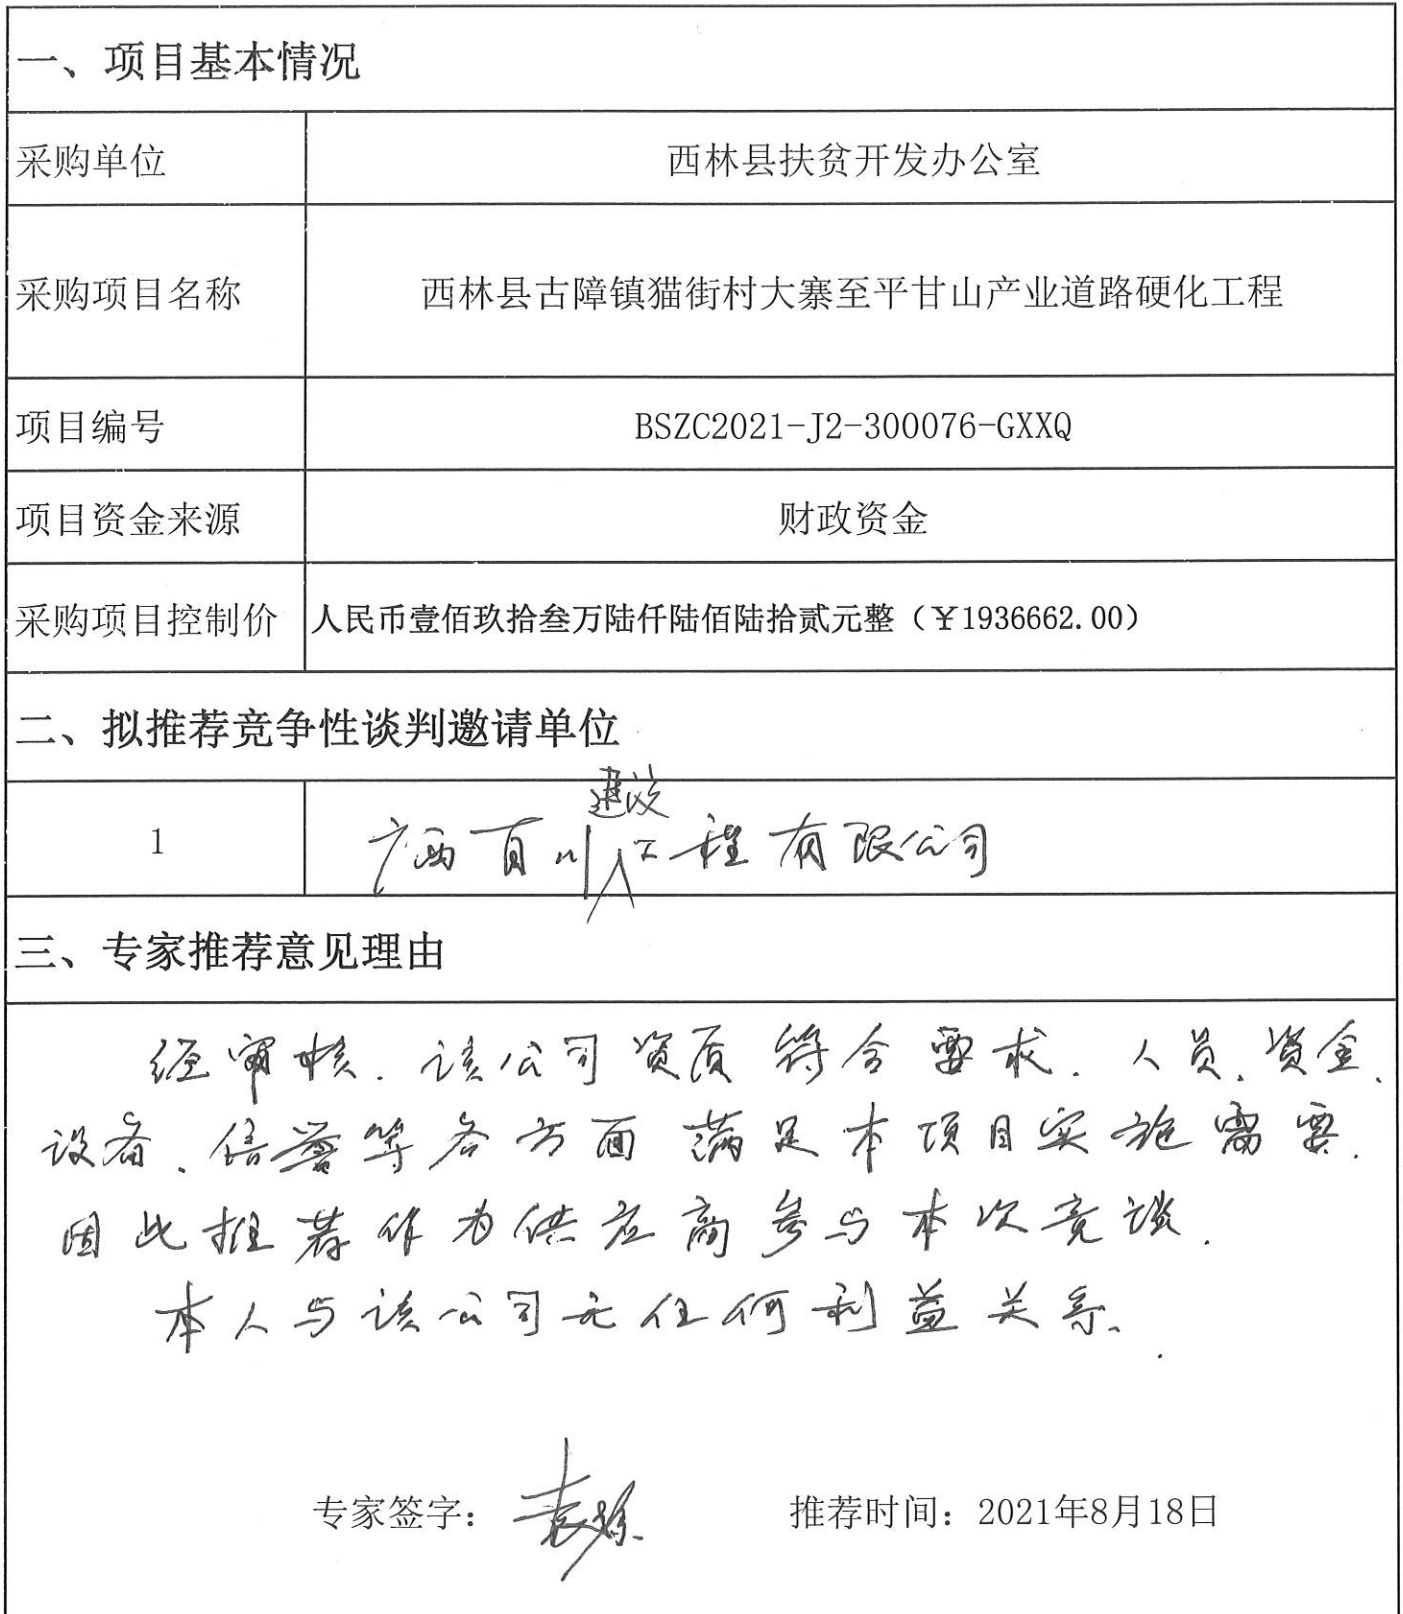 一、项目基本情况
采购单位 西林县扶贫开发办公室
采购项目名称 西林县古障镇猫街村大寨至平甘山产业道路硬化工程
项目编号 BSZC2021-J2-300076-GXXQ
项目资金来源 财政资金
采购项目控制价 人民币壹佰玖拾叁万陆仟陆佰陆拾贰元整（￥1936662.00）
二、拟推荐竞争性谈判邀请单位
1 广西百川建设工程有限公司
三、专家推荐意见理由
经审核.该公司资质符合要求.人员、资金、
设备、信誉等各方面满足本项目实施需要.
因此推荐作为供应商参与本次竞谈.
本人与该公司无任何利益关系.
专家签字： 推荐时间：2021年8月18日